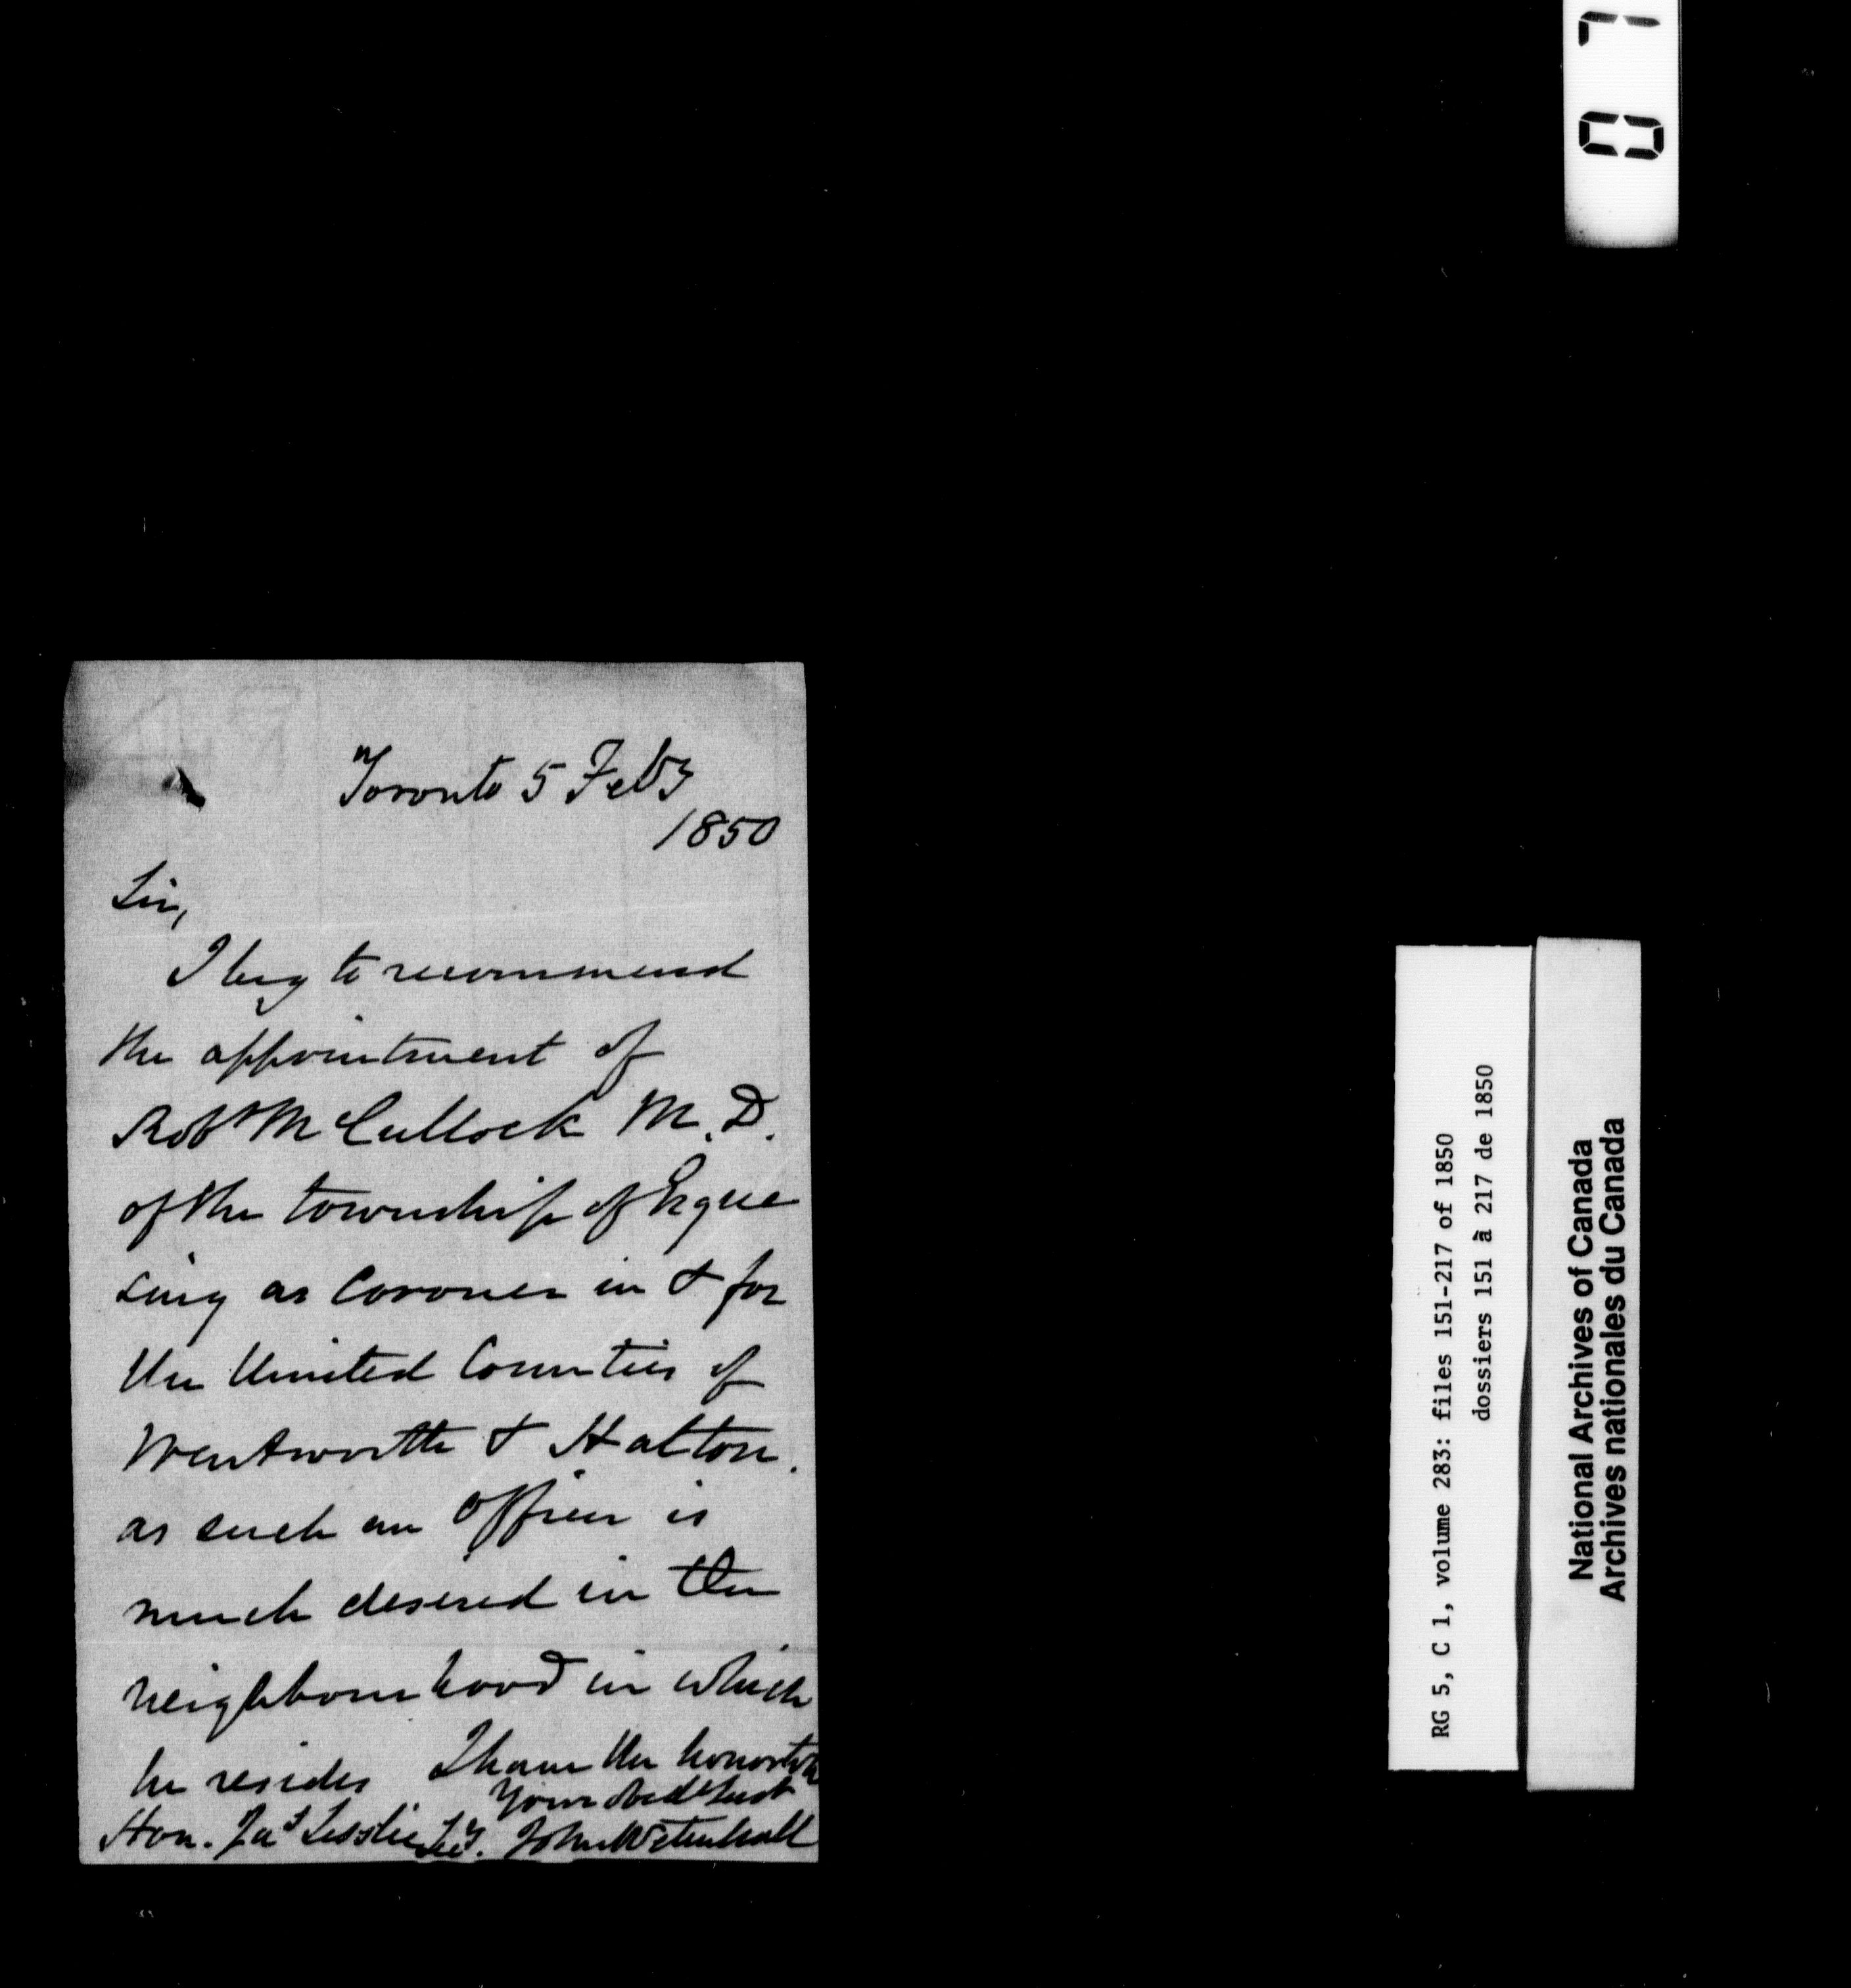 Toronto 5 Feby
1850
Sir,
I beg to recommend
the appointment of
Robt McCullock M.D.
of the township of Esque
sing as Coroner in & for
the United Counties of
Wentworth & Halton.
as such an officer is
much desired in the
neighbourhood in which
he resides I have the honor to be
Your obedt Servt
Hon. Jas Leslie Secy. John Wetenhall
RG 5, C 1, volume 283: files 151-217 of 1850
dossiers 151 à 217 de 1850
National Archives of Canada
Archives nationales du Canada